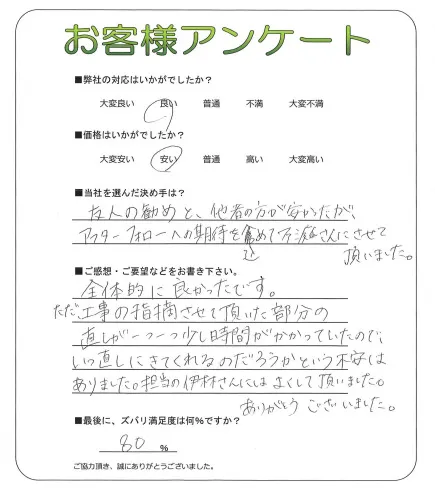 お客様アンケート
■弊社の対応はいかがでしたか?
大変良い 良い 普通 不満 大変不満
■価格はいかがでしたか?
大変安い 安い 普通 高い 大変高い
■当社を選んだ決め手は?
友人の勧めと、他者の方が安かったが、
アフターフォローへの期待を含めて
さんにさせて
頂いました。
■ご感想・ご要望などをお書き下さい。
全体的に良かったです。
ただ工事の指摘させて頂いた部分の
直しが一つ一つ少し時間がかかっていたので、
いつ直しにきてくれるのだろうかという不安は
ありました。担当の伊林さんにはよくして頂いました。
ありがとうございました。
■最後に、ズバリ満足度は何%ですか?
80 %
ご協力頂き、誠にありがとうございました。